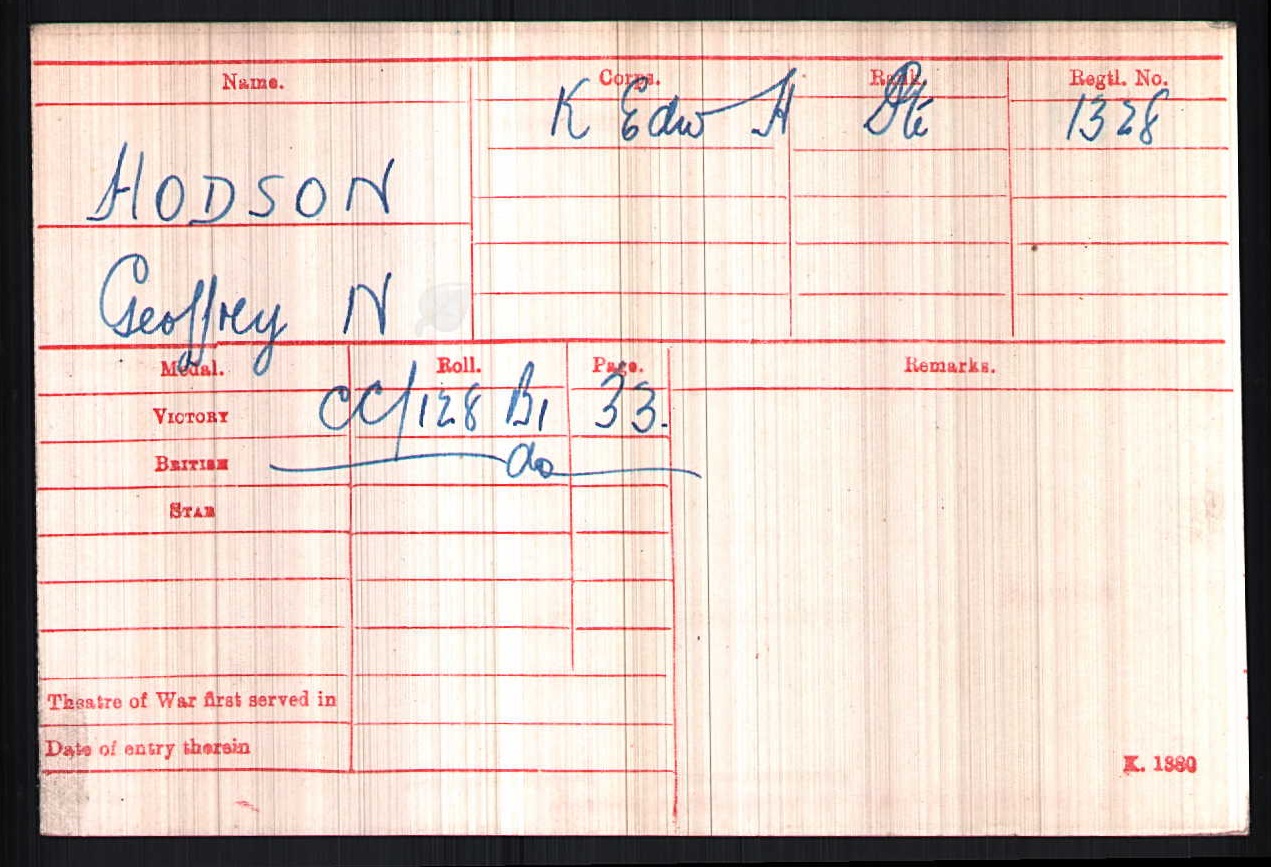 Name. Corps. Rank. Regtl. No.
K Edw H Pte 1328
HODSON
Geoffrey N
Medal. Roll. Page. Remarks.
VICTORY CC/128 B1 33.
BRITISH do
STAR
Theatre of War first served in
Date of entry therein
K. 1380